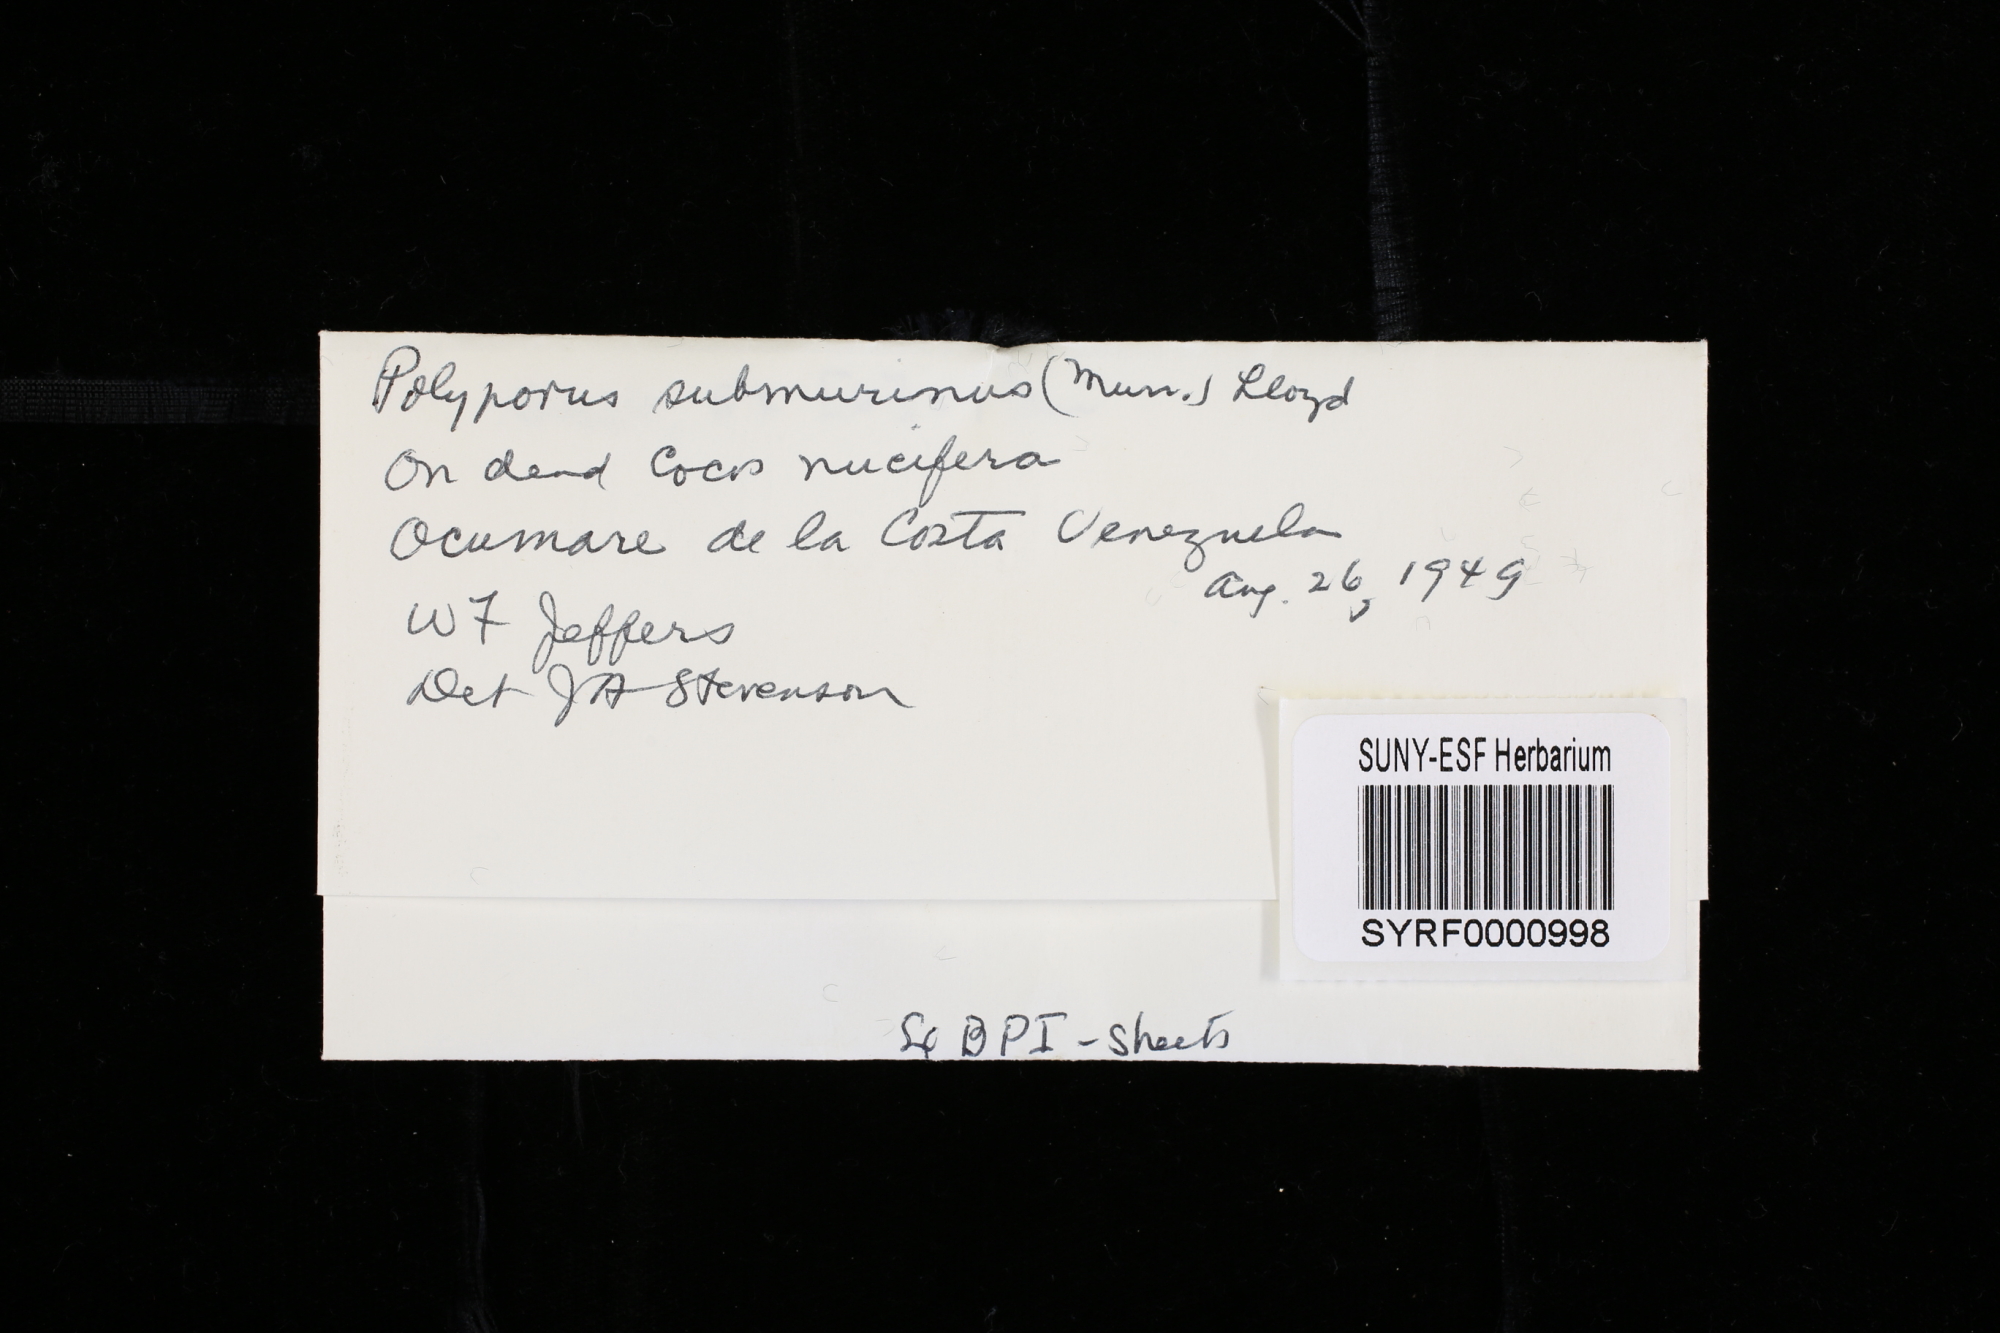 Polyporus submurinus (Murr.) Lloyd
On dead Cocos nucifera
Ocumare de la Costa Venezuela
Aug. 26, 1949
W F Jeffers
Det J A Stevenson
SUNY-ESF Herbarium
SYRF0000998
BPI - Sheets